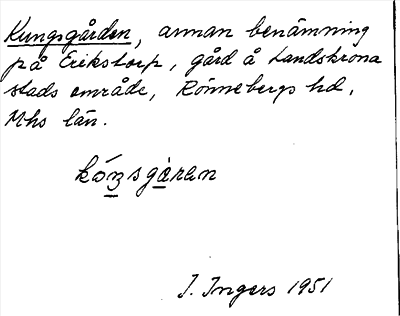 Kungsgården, annan benämning
på Erikstorp, gård å Landskrona
stads område, Rönnebergs hd,
Mhs län.
kóṉsgàran
I. Ingers 1951